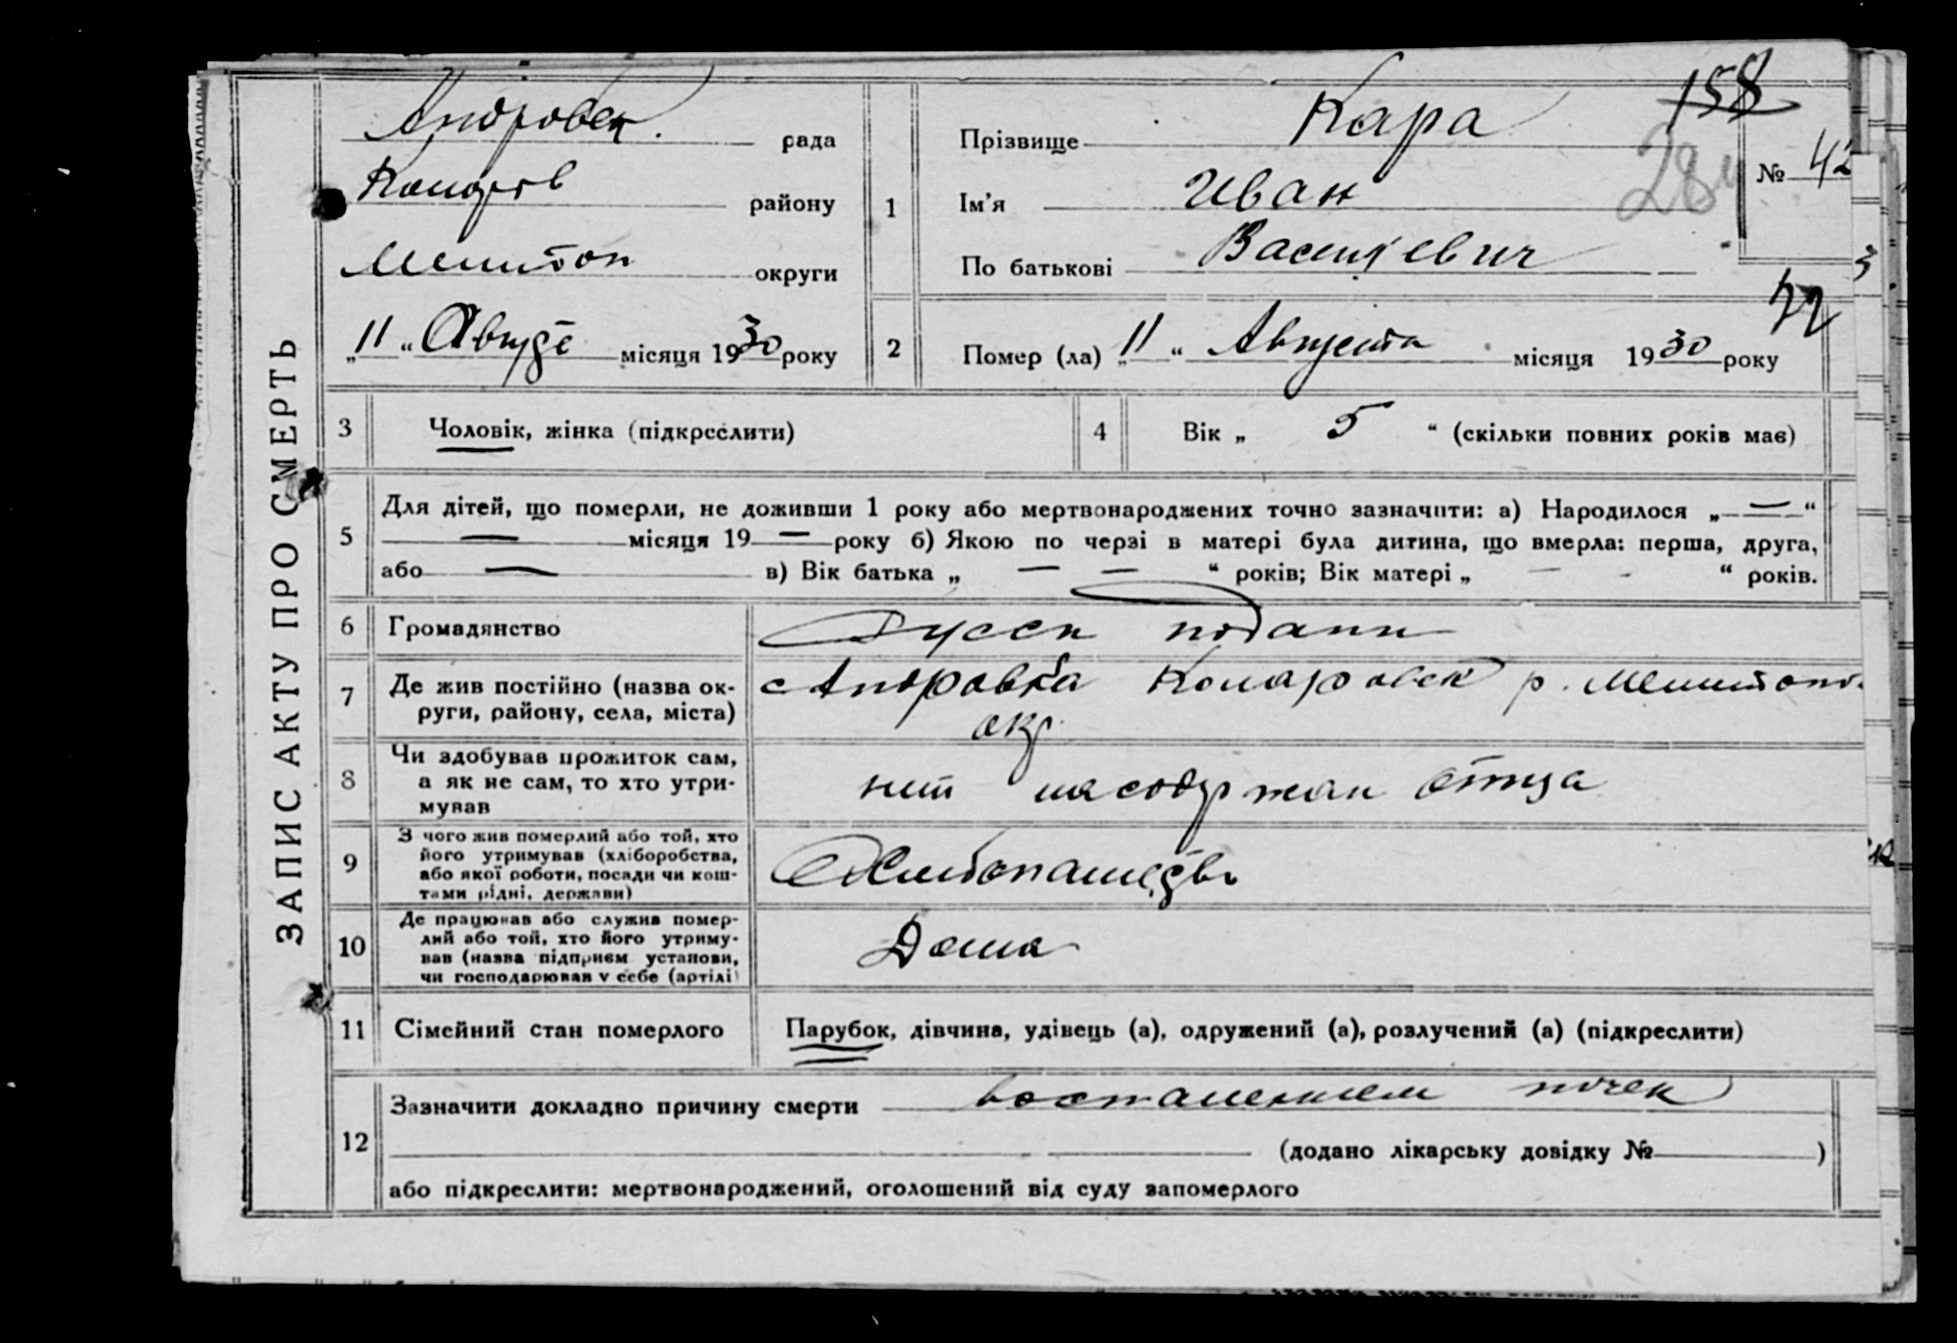 ЗАПИС АКТУ ПРО СМЕРТЬ
Андровск. рада
Комаров району
Мелитоп округи
„11“ Августа місяця 1930 року
1
Прізвище Кара
Ім'я Иван
По батькові Васильевич
158
284
№ 42
2
Помер (ла) „11“ Августа місяця 1930 року
3 Чоловік, жінка (підкреслити)
4 Вік „ 5 “ (скільки повних років має)
5
Для дітей, що померли, не доживши 1 року або мертвонароджених точно зазначити: а) Народилося „—“
— місяця 19 — року б) Якою по черзі в матері була дитина, що вмерла: перша, друга,
або — в) Вік батька „ — — “ років; Вік матері „ — - “ років.
6 Громадянство Русск подани
7 Де жив постійно (назва ок-
руги, району, села, міста)
с Андровка Комаровск р. Мелитопо.
окр
8 Чи здобував прожиток сам,
а як не сам, то хто утри-
мував
нет на содержан Отца
9 З чого жив померлий або той, хто
його утримував (хліборобства,
або якої роботи, посади чи кош-
тами рідні, держави)
Хлебопашество
10 Де працював або служив помер-
лий або той, хто його утриму-
вав (назва підприєм установи,
чи господарював у себе (артілі)
Дома
11 Сімейний стан померлого Парубок, дівчина, удівець (а), одружений (а), розлучений (а) (підкреслити)
12
Зазначити докладно причину смерти воспалением почек
(додано лікарську довідку № )
або підкреслити: мертвонароджений, оголошений від суду запомерлого